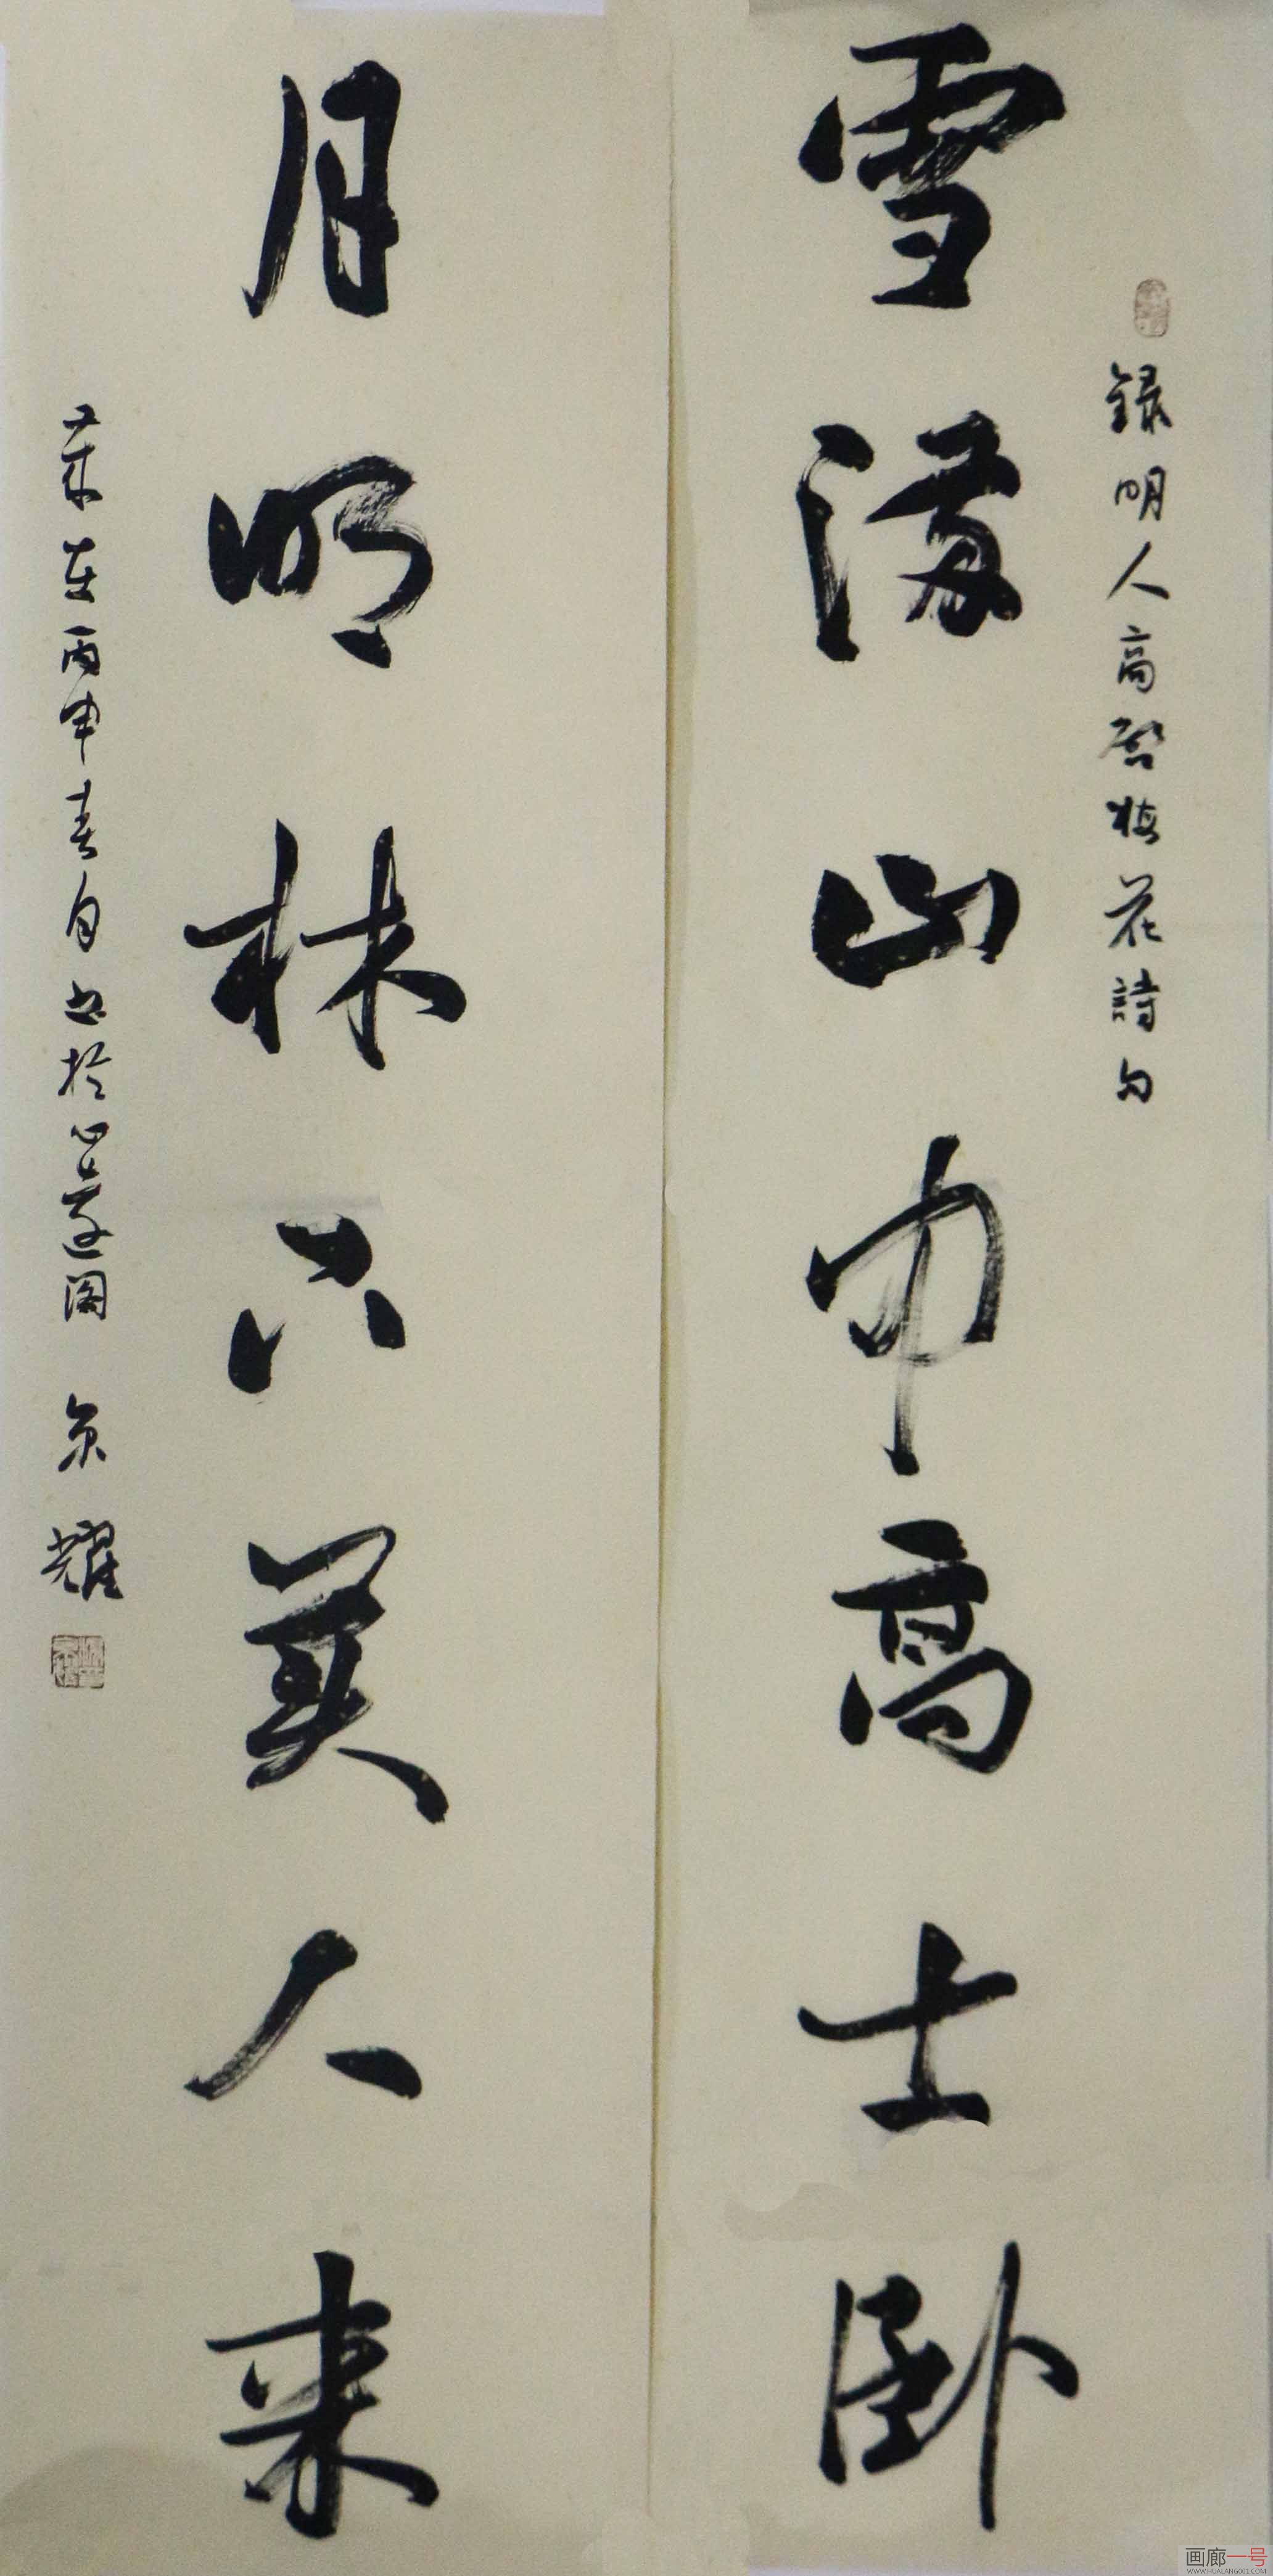 雪满山中高士卧
録明人高啓梅花詩句
月明林下美人来
歲在丙申春月书於心遠阁 京耀
画廊一号
WWW.HUALANG001.COM